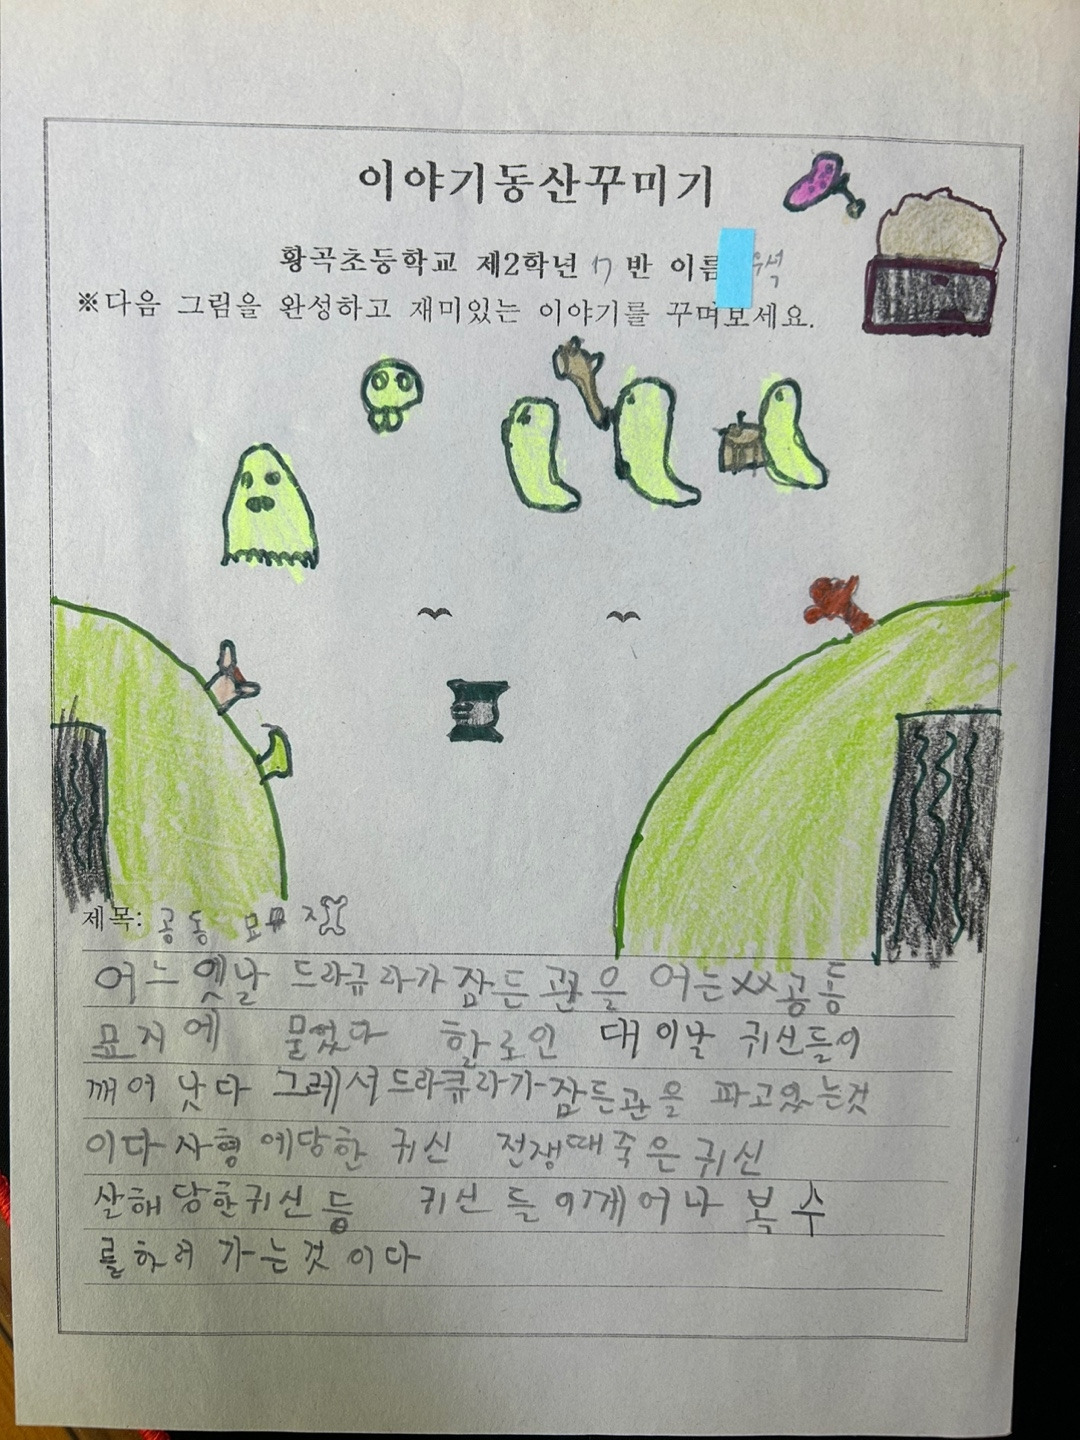 이야기동산꾸미기
황곡초등학교 제2학년 17 반 이름 우석
※다음 그림을 완성하고 재미있는 이야기를 꾸며보세요.
제목: 공동 묘
어느 옛날 드라큐라가 잠든 관을 어는 XX 공동
묘지에 물었다 할로인 대 이날 귀신들이
깨어 낫다 그레서 드라큐라가 잠든관을 파고있는것
이다 사형 에당한 귀신 전쟁때죽은 귀신
살해 당한귀신 등 귀신 들 이께어나 복수
를하러 가는것 이다